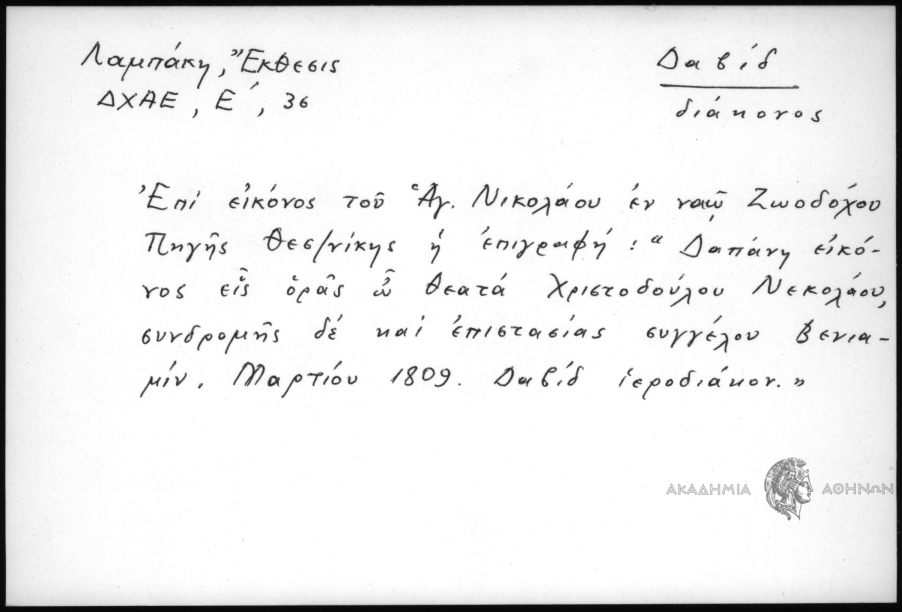 Λαμπάκη, Ἔκθεσις
ΔΧΑΕ, Ε΄, 36
Δαβίδ
διάκονος
Ἐπί εἰκόνος τοῦ Ἁγ. Νικολάου ἐν ναῷ Ζωοδόχου
Πηγῆς Θεσ/νίκης ἡ ἐπιγραφή: "Δαπάνη εἰκό-
νος εἷς ὁρᾶς ὦ θεατά Χριστοδούλου Νεκολάου,
συνδρομῆς δέ καί ἐπιστασίας συγγέλου Βενια-
μίν. Μαρτίου 1809. Δαβίδ ἱεροδιάκον."
ΑΚΑΔΗΜΙΑ ΑΘΗΝΩΝ